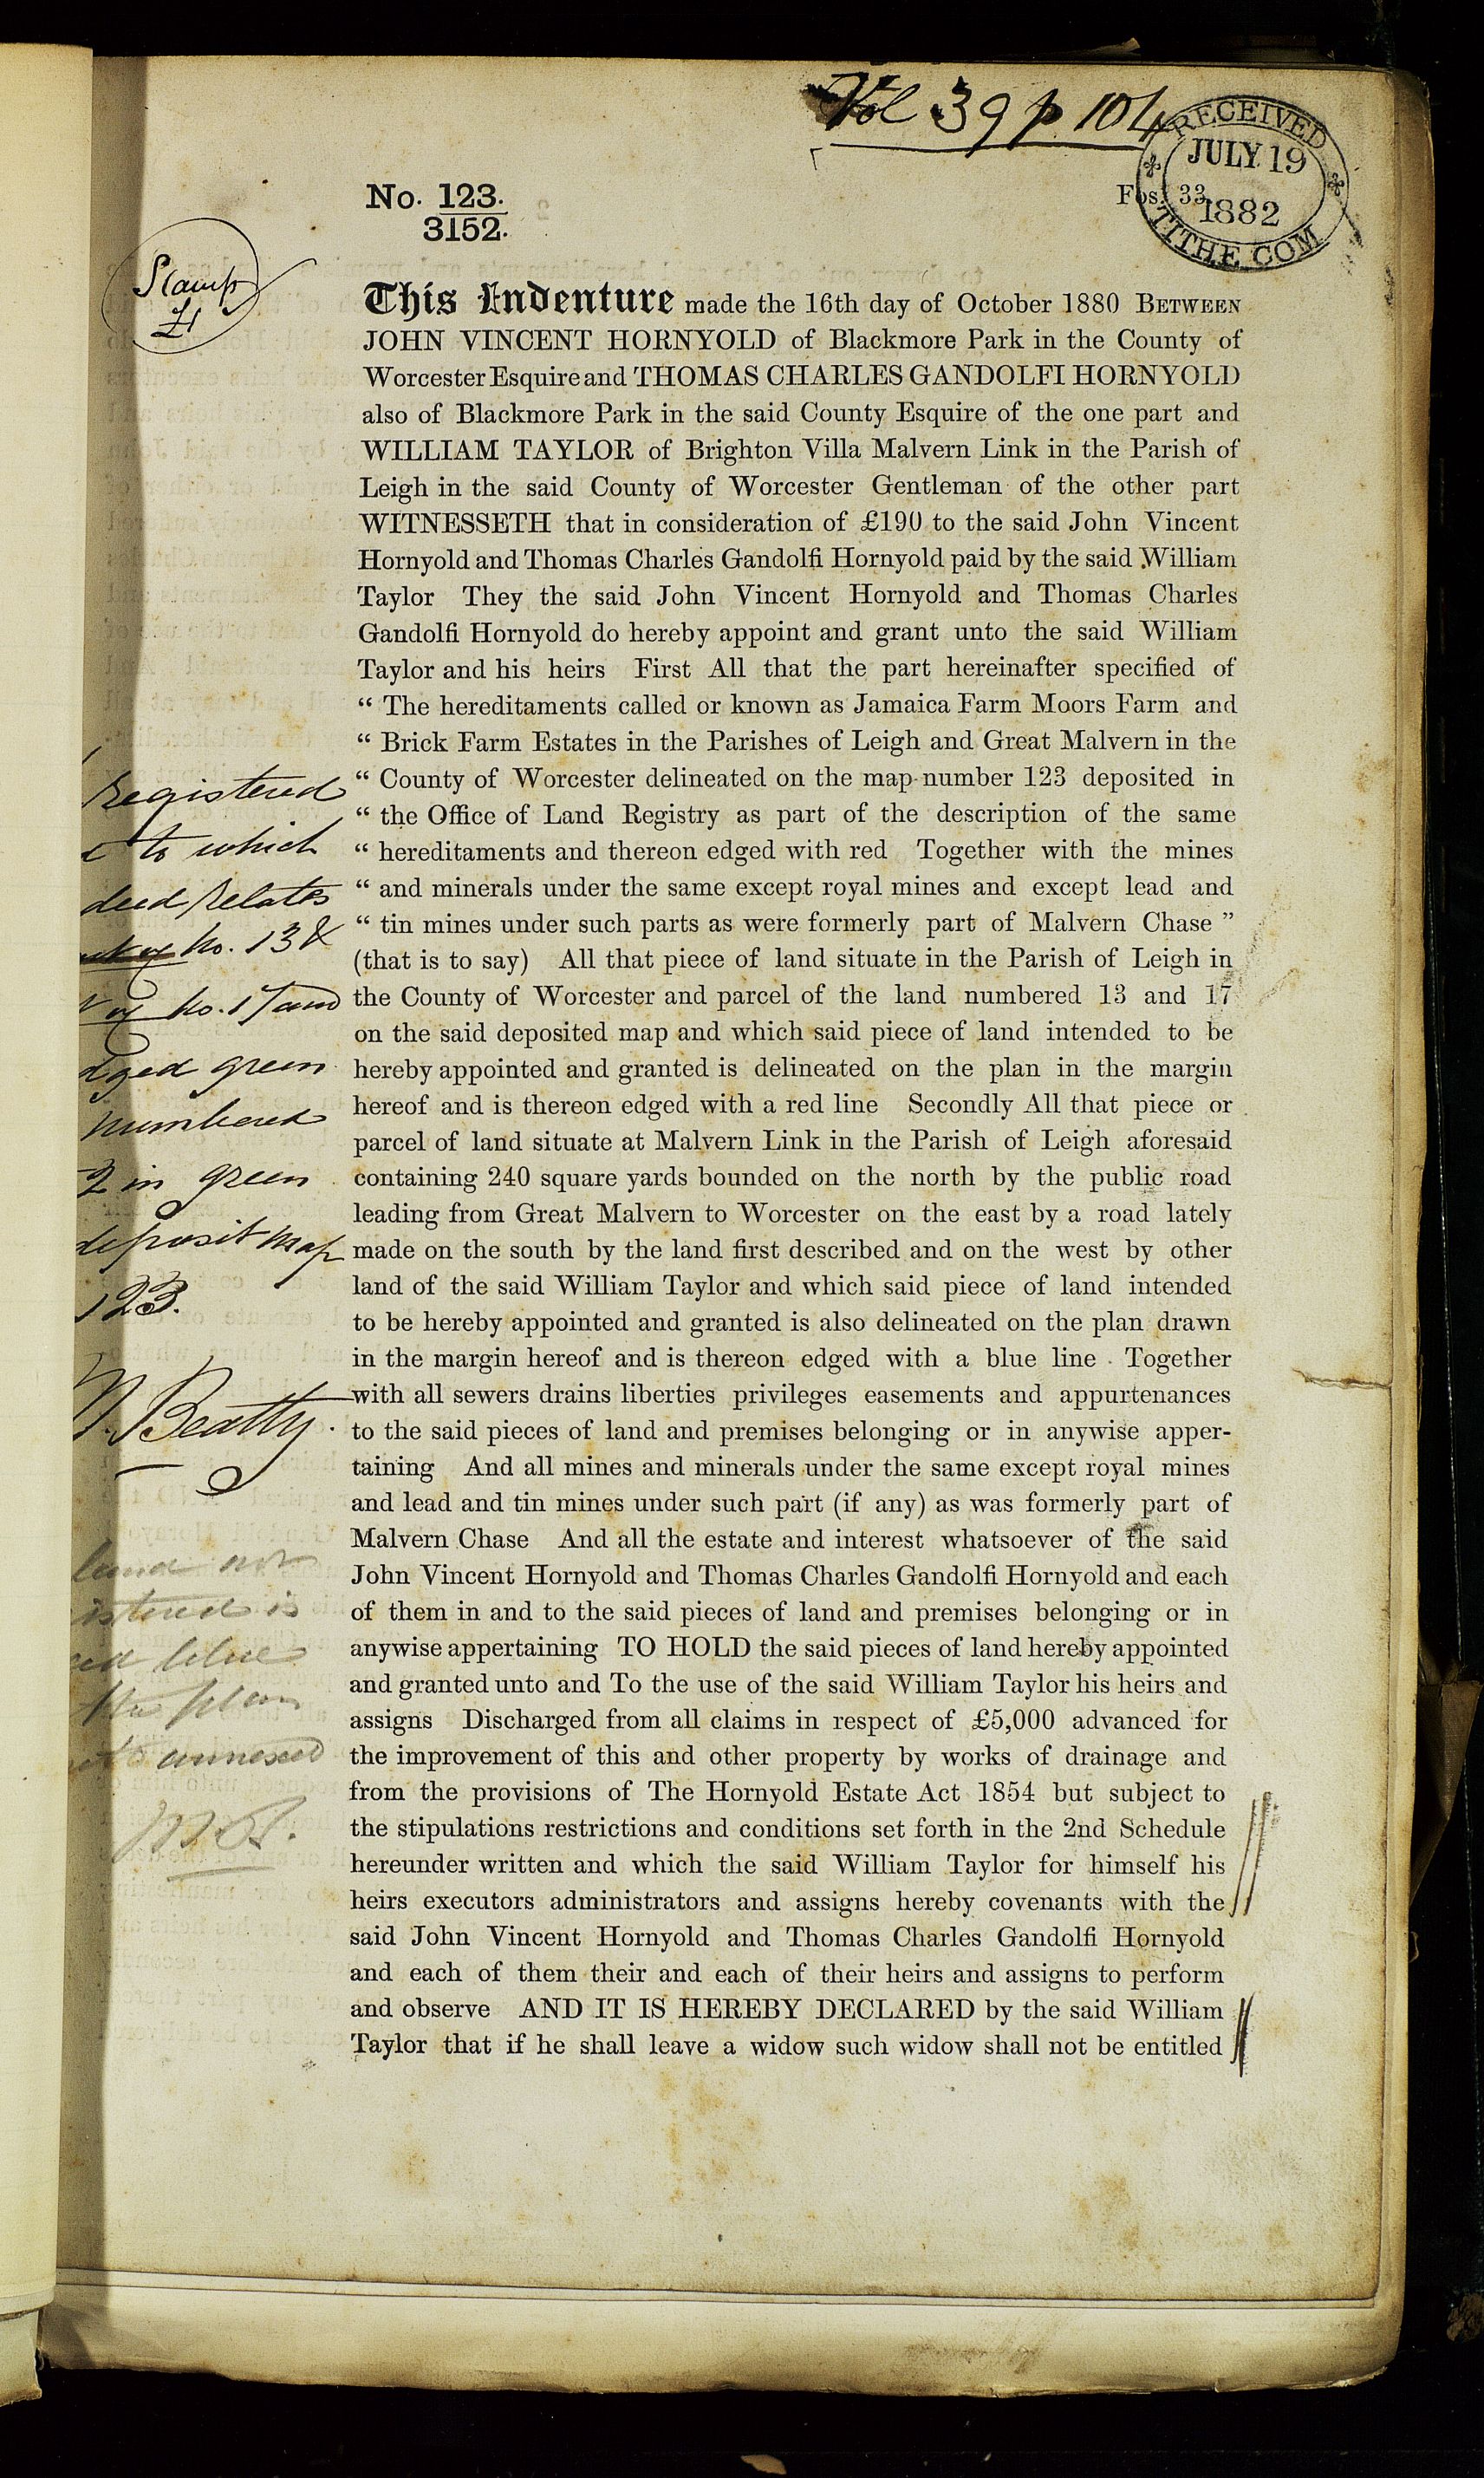 Vol 39 p 104
RECEIVED
JULY 19
1882
TITHE COM
No. 123.
3152.
Fos. 33
Stamp
£1
This Indenture made the 16th day of October 1880 BETWEEN
JOHN VINCENT HORNYOLD of Blackmore Park in the County of
Worcester Esquire and THOMAS CHARLES GANDOLFI HORNYOLD
also of Blackmore Park in the said County Esquire of the one part and
WILLIAM TAYLOR of Brighton Villa Malvern Link in the Parish of
Leigh in the said County of Worcester Gentleman of the other part
WITNESSETH that in consideration of £190 to the said John Vincent
Hornyold and Thomas Charles Gandolfi Hornyold paid by the said William
Taylor They the said John Vincent Hornyold and Thomas Charles
Gandolfi Hornyold do hereby appoint and grant unto the said William
Taylor and his heirs First All that the part hereinafter specified of
“ The hereditaments called or known as Jamaica Farm Moors Farm and
“ Brick Farm Estates in the Parishes of Leigh and Great Malvern in the
“ County of Worcester delineated on the map number 123 deposited in
“ the Office of Land Registry as part of the description of the same
“ hereditaments and thereon edged with red Together with the mines
“ and minerals under the same except royal mines and except lead and
“ tin mines under such parts as were formerly part of Malvern Chase ”
(that is to say) All that piece of land situate in the Parish of Leigh in
the County of Worcester and parcel of the land numbered 13 and 17
on the said deposited map and which said piece of land intended to be
hereby appointed and granted is delineated on the plan in the margin
hereof and is thereon edged with a red line Secondly All that piece or
parcel of land situate at Malvern Link in the Parish of Leigh aforesaid
containing 240 square yards bounded on the north by the public road
leading from Great Malvern to Worcester on the east by a road lately
made on the south by the land first described and on the west by other
land of the said William Taylor and which said piece of land intended
to be hereby appointed and granted is also delineated on the plan drawn
in the margin hereof and is thereon edged with a blue line Together
with all sewers drains liberties privileges easements and appurtenances
to the said pieces of land and premises belonging or in anywise apper-
taining And all mines and minerals under the same except royal mines
and lead and tin mines under such part (if any) as was formerly part of
Malvern Chase And all the estate and interest whatsoever of the said
John Vincent Hornyold and Thomas Charles Gandolfi Hornyold and each
of them in and to the said pieces of land and premises belonging or in
anywise appertaining TO HOLD the said pieces of land hereby appointed
and granted unto and To the use of the said William Taylor his heirs and
assigns Discharged from all claims in respect of £5,000 advanced for
the improvement of this and other property by works of drainage and
from the provisions of The Hornyold Estate Act 1854 but subject to
the stipulations restrictions and conditions set forth in the 2nd Schedule
hereunder written and which the said William Taylor for himself his
heirs executors administrators and assigns hereby covenants with the
said John Vincent Hornyold and Thomas Charles Gandolfi Hornyold
and each of them their and each of their heirs and assigns to perform
and observe AND IT IS HEREBY DECLARED by the said William
Taylor that if he shall leave a widow such widow shall not be entitled
Registered
to which
deed relates
No. 13 &
No. 17 and
dged green
numbered
2 in green
deposit map
123.
Beatty.
land not
istered is
ed blue
the plan
annexed